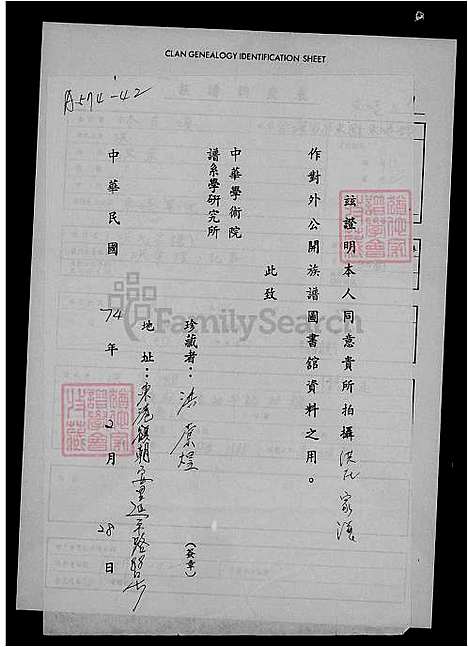 CLAN GENEALOGY IDENTIFICATION SHEET
A574-42
茲證明本人同意貴所拍攝洪氏家譜
作對外公開族譜圖書館資料之用。
此致
中華學術院
譜系學研究所
珍藏者：洪 煌 (簽章)
地址：東港鎮朝安里延平路 号
中華民國 74 年 2 月 28 日
FamilySearch